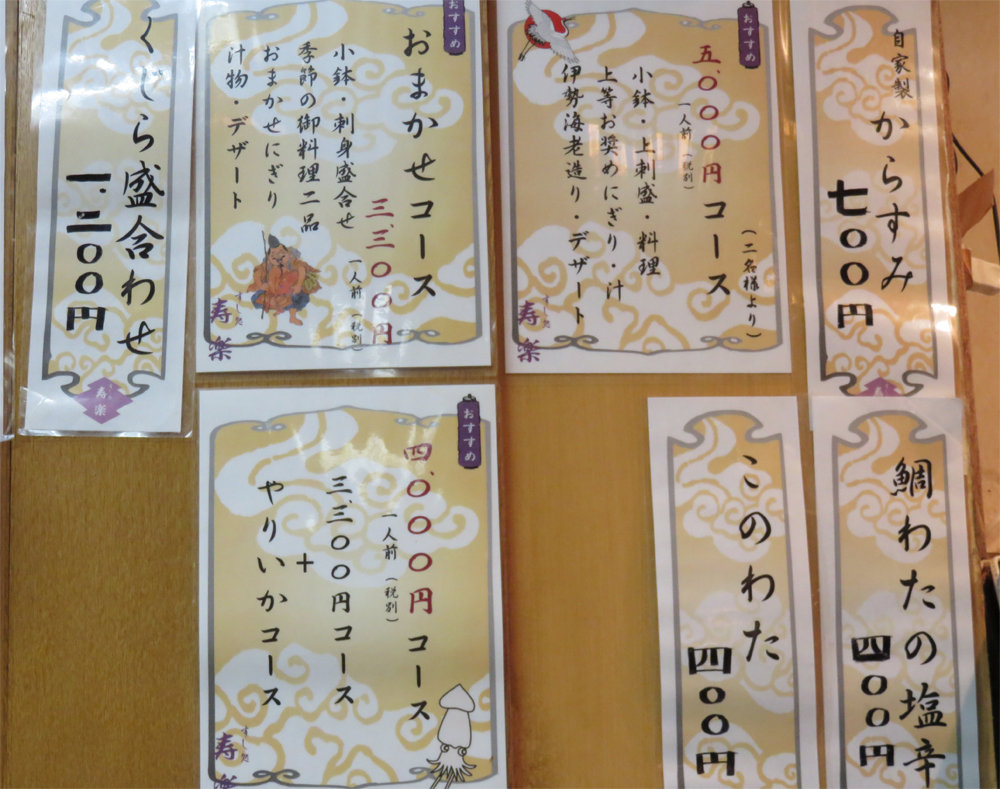 くじら盛合わせ
一、二〇〇円
寿楽
おすすめ
おまかせコース
三、三〇〇円
一人前(税別)
小鉢・刺身盛合せ
季節の御料理二品
おまかせにぎり
汁物・デザート
すし処
寿楽
おすすめ
五、〇〇〇円コース
(二名様より)
一人前(税別)
小鉢・上刺盛・料理
上等お奨めにぎり・汁
伊勢海老造り・デザート
すし処
寿楽
自家製
からすみ
七〇〇円
寿楽
おすすめ
四、〇〇〇円コース
一人前(税別)
三、三〇〇円コース
+
やりいかコース
すし処
寿楽
このわた
四〇〇円
鯛わたの塩辛
四〇〇円